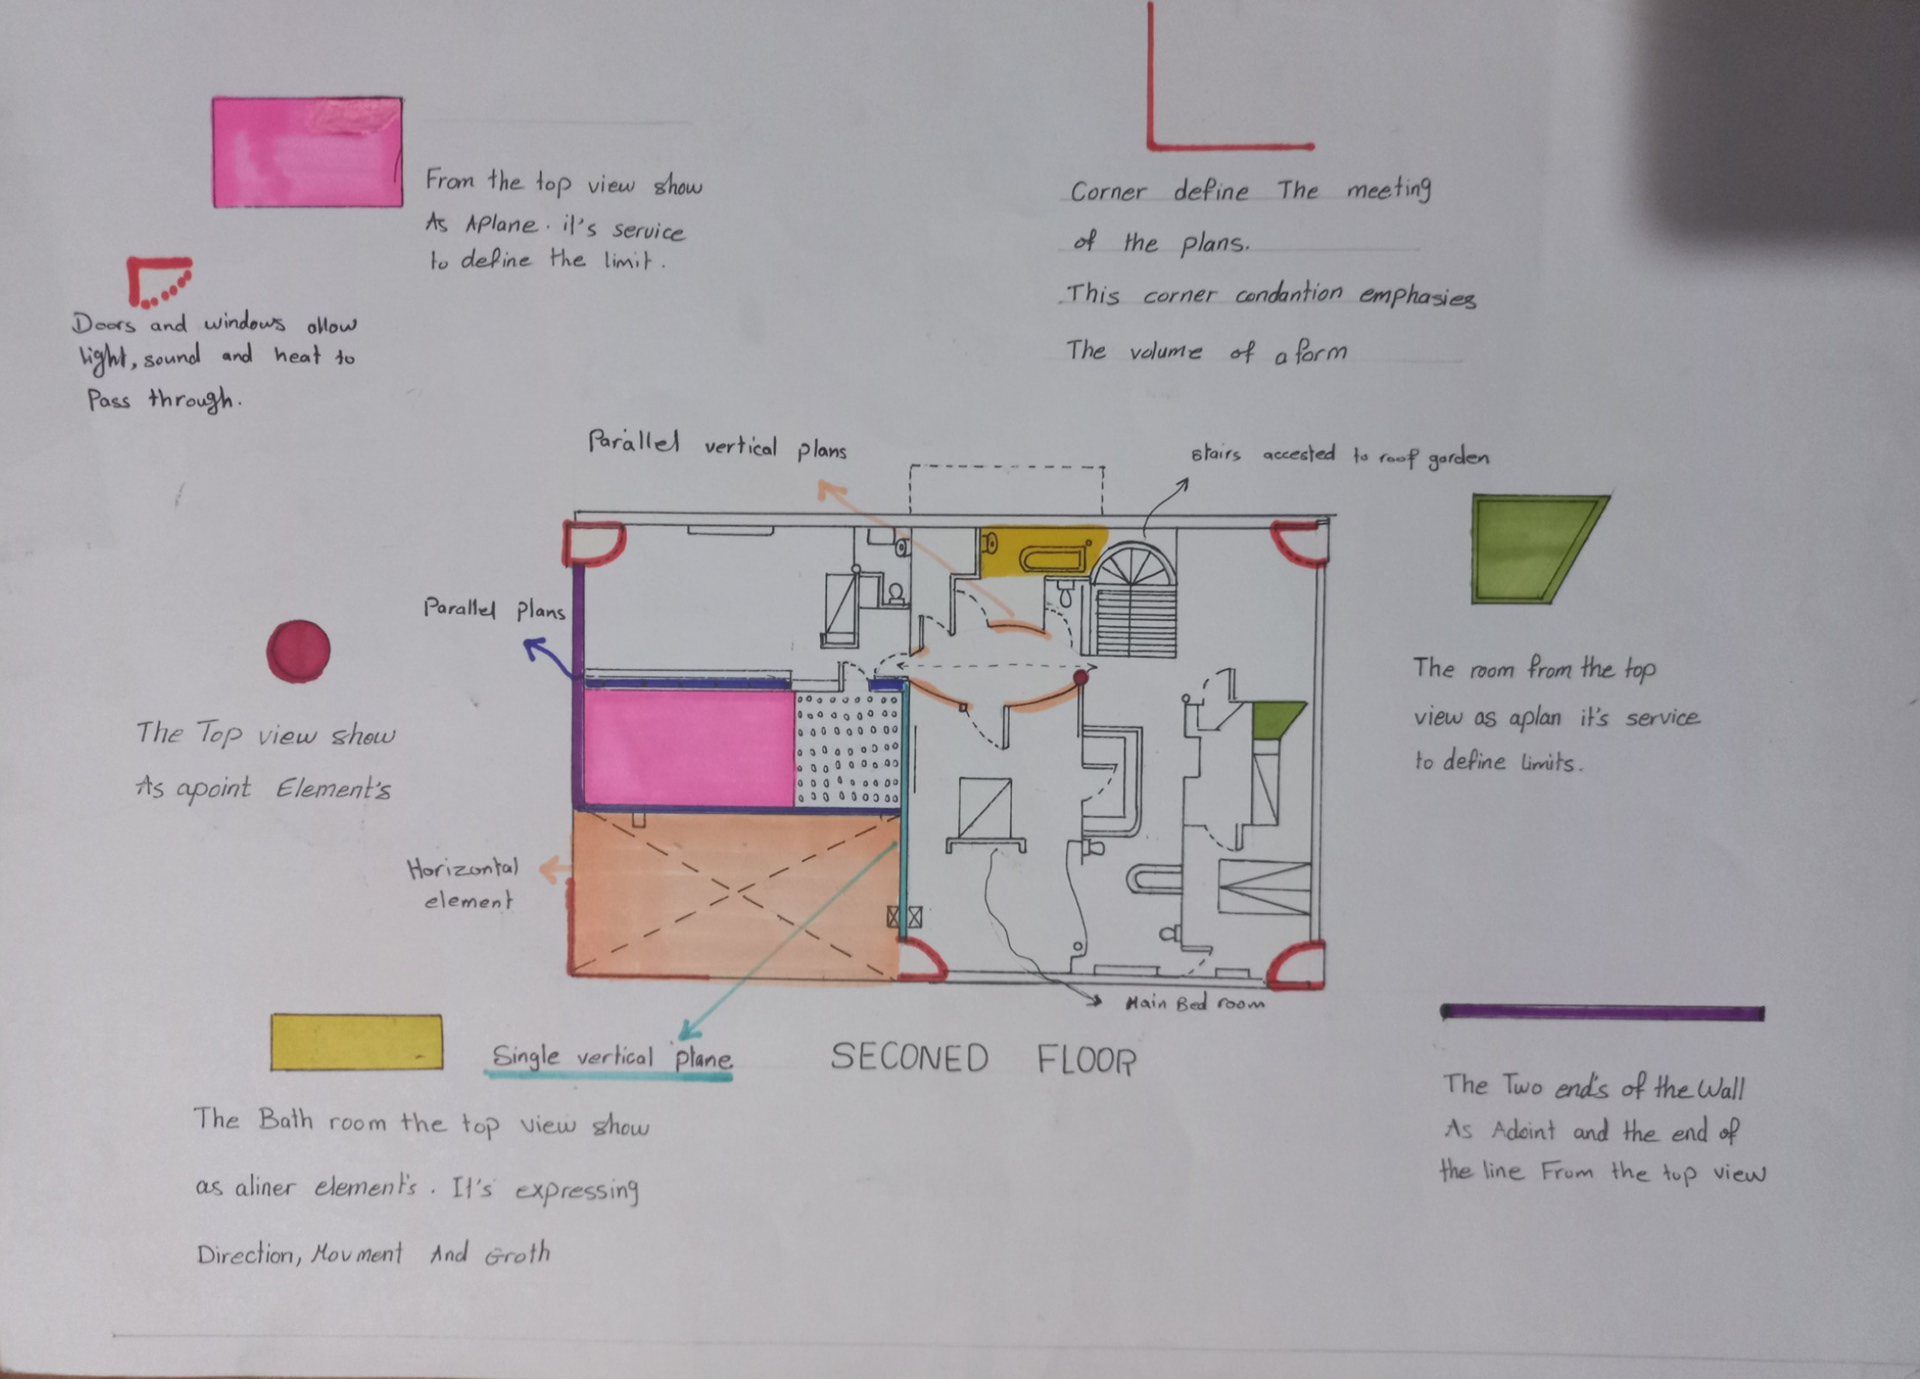 From the top view show
As Aplane. it's service
to define the limit.
Doors and windows allow
light, sound and heat to
Pass through.
Corner define The meeting
of the plans.
This corner condantion emphasies
The volume of a form
Parallel vertical plans
stairs accested to roof garden
Parallel plans
The Top view show
As apoint Element's
The room from the top
view as aplan it's service
to define limits.
Horizontal
element
Main Bed room
Single vertical plane
SECONED FLOOR
The Bath room the top view show
as aliner element's. It's expressing
Direction, Movment And Groth
The Two end's of the Wall
As Adoint and the end of
the line From the top view